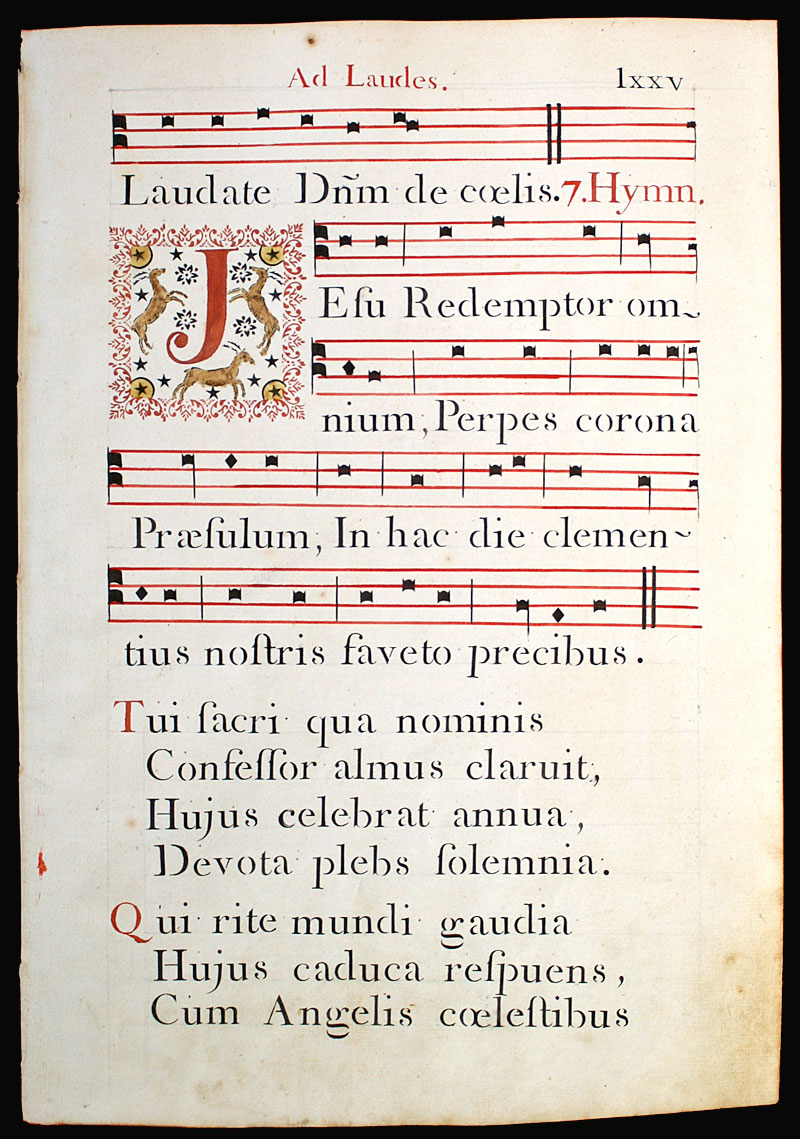 Ad Laudes. lxxv
Laudate Dñm de cœlis. 7. Hymn.
JEſu Redemptor om~
nium, Perpes corona
Præſulum, In hac die clemen~
tius noſtris faveto precibus.
Tui ſacri qua nominis
Confeſſor almus claruit,
Hujus celebrat annua,
Devota plebs ſolemnia.
Qui rite mundi gaudia
Hujus caduca reſpuens,
Cum Angelis cœleſtibus